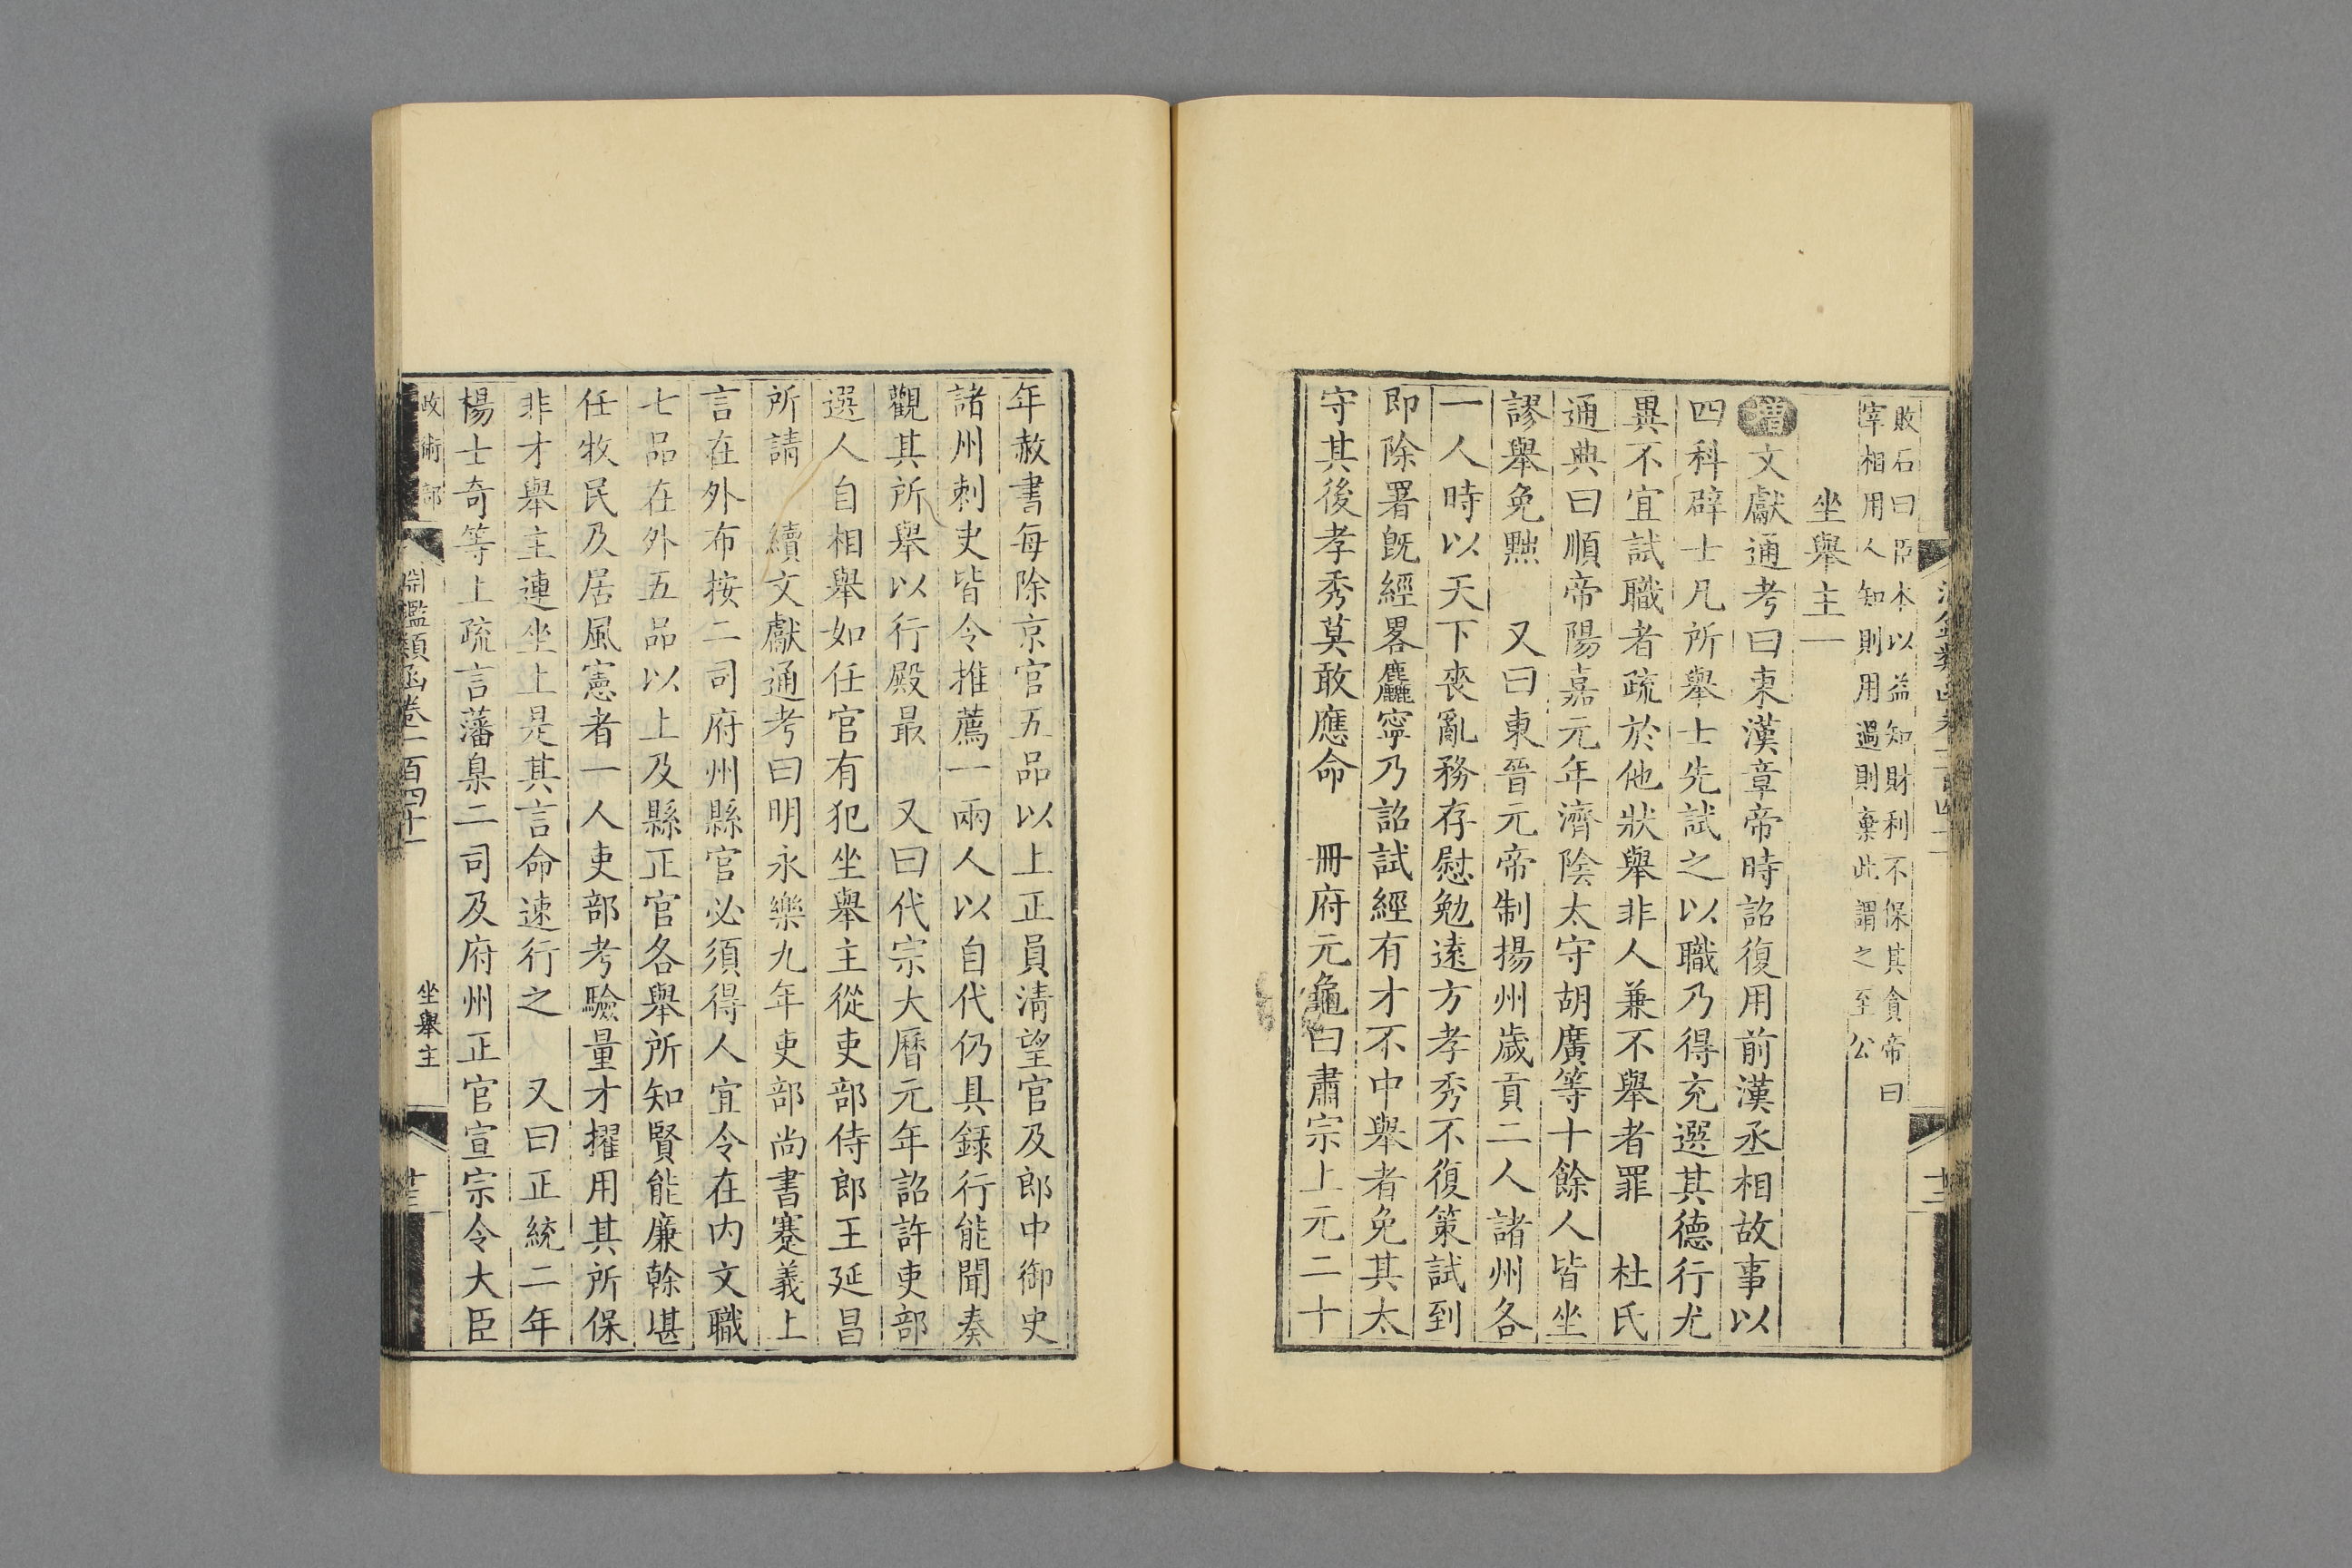 敗石曰臣本以益知財利不保其貪帝曰
宰相用人知則用過則棄此謂之至公
坐舉主一
增文獻通考曰東漢章帝時詔復用前漢丞相故事以
四科辟士凡所舉士先試之以職乃得充選其德行尤
異不宜試職者疏於他狀舉非人兼不舉者罪　杜氏
通典曰順帝陽嘉元年濟陰太守胡廣等十餘人皆坐
謬舉免黜　又曰東晉元帝制揚州歲貢二人諸州各
一人時以天下喪亂務存慰勉遠方孝秀不復策試到
即除署旣經畧麤寧乃詔試經有才不中舉者免其太
守其後孝秀莫敢應命　冊府元龜曰肅宗上元二十
年赦書每除京官五品以上正員清望官及郎中御史
諸州刺史皆令推薦一兩人以自代仍具錄行能聞奏
觀其所舉以行殿最　又曰代宗大曆元年詔許吏部
選人自相舉如任官有犯坐舉主從吏部侍郎王延昌
所請　續文獻通考曰明永樂九年吏部尚書蹇義上
言在外布按二司府州縣官必須得人宜令在内文職
七品在外五品以上及縣正官各舉所知賢能廉幹堪
任牧民及居風憲者一人吏部考驗量才擢用其所保
非才舉主連坐上是其言命速行之　又曰正統二年
楊士奇等上疏言藩臬二司及府州正官宣宗令大臣
政術部
淵鑑類函卷一百四十一
坐舉主